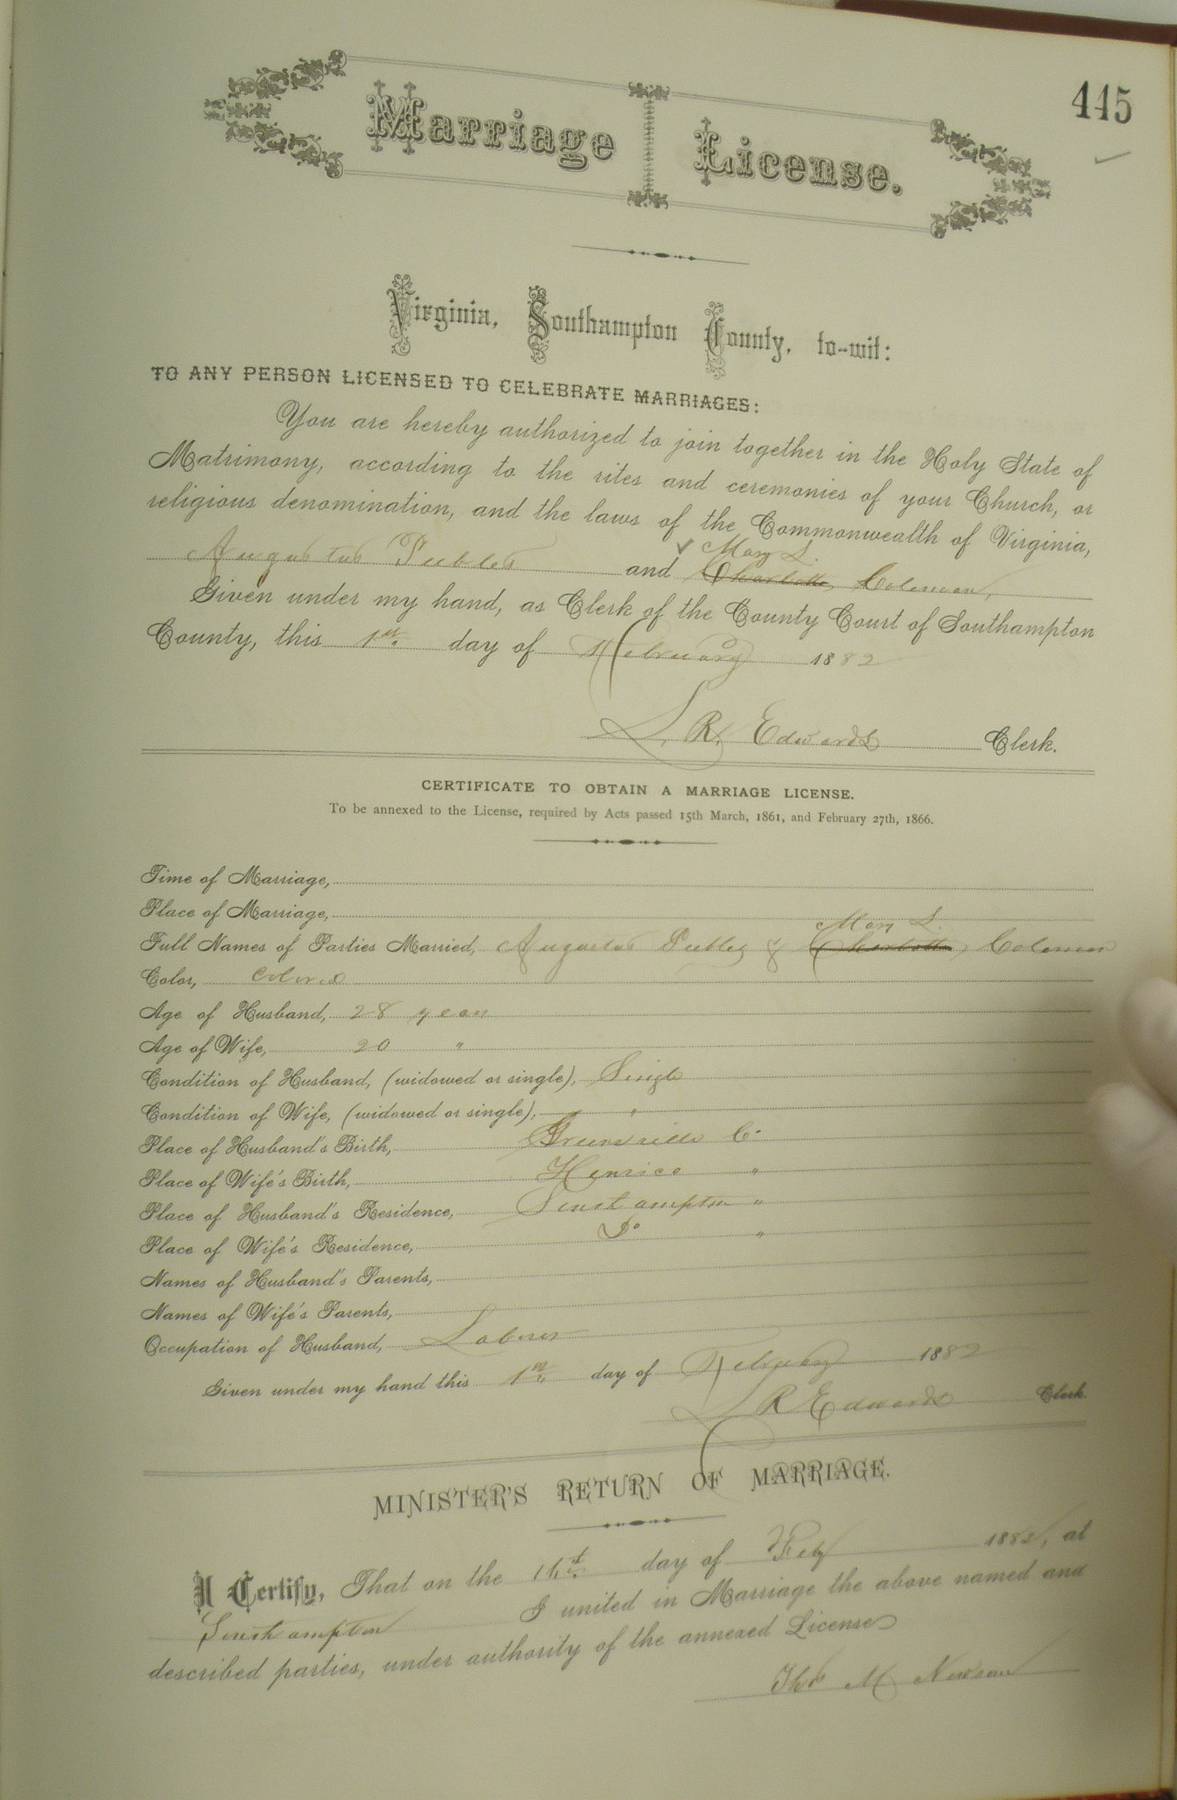 445
Marriage License.
Virginia, Southampton County, to-wit:
TO ANY PERSON LICENSED TO CELEBRATE MARRIAGES:
You are hereby authorized to join together in the Holy State of
Matrimony, according to the rites and ceremonies of your Church, or
religious denomination, and the laws of the Commonwealth of Virginia,
Mary L.
Augustus Peebles and Charlotte Coleman,
Given under my hand, as Clerk of the County Court of Southampton
County, this 1st day of February 1882
L. R. Edwards Clerk.
CERTIFICATE TO OBTAIN A MARRIAGE LICENSE.
To be annexed to the License, required by Acts passed 15th March, 1861, and February 27th, 1866.
Time of Marriage,
Place of Marriage,
Mary L.
Full Names of Parties Married, Augustus Peebles & Charlotte Coleman
Color, Colored
Age of Husband, 28 years
Age of Wife, 20 "
Condition of Husband, (widowed or single), Single
Condition of Wife, (widowed or single), "
Place of Husband's Birth, Greensville Co.
Place of Wife's Birth, Henrico "
Place of Husband's Residence, Southampton "
Place of Wife's Residence, Do "
Names of Husband's Parents,
Names of Wife's Parents,
Occupation of Husband, Laborer
Given under my hand this 1st day of February 1882
L R Edwards Clerk.
MINISTER'S RETURN OF MARRIAGE.
I Certify, That on the day of Feby 1882, at
Southampton I united in Marriage the above named and
described parties, under authority of the annexed License
Thos M Newsom